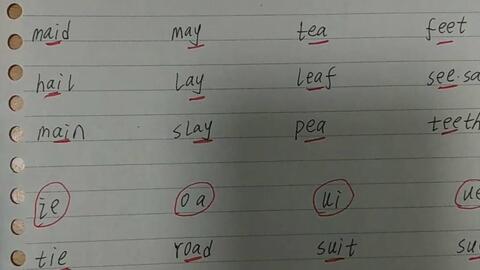 maid may tea feet
hail lay leaf
main slay pea teeth
ie oa ui
tie road suit